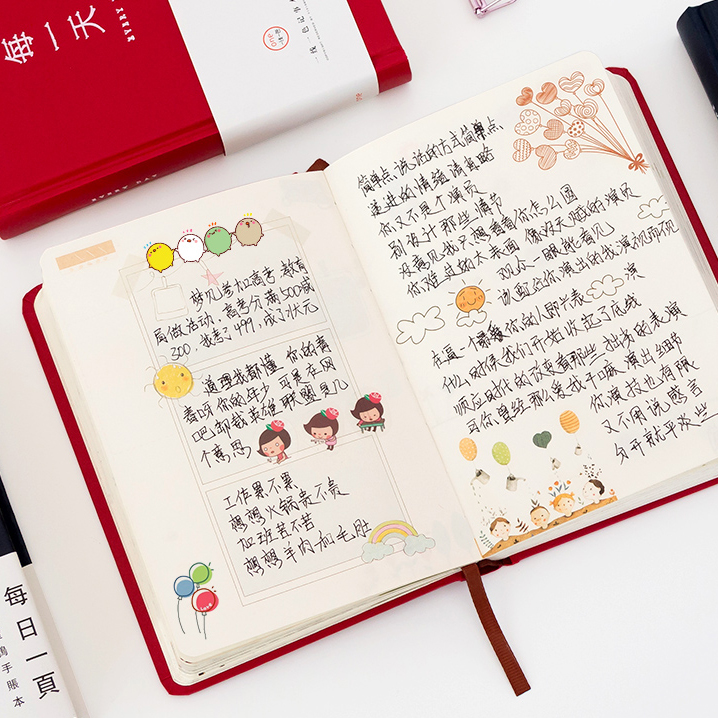 每一天
EVERY DAY
梦见参加高考 教育
局做活动，高考分满500减
300，我考了499，成了状元
道理我都懂 你的青
春呀 你的年少 可是在网
吧卸载英雄联盟是几
个意思
工作累不累
想想火锅贵不贵
加班苦不苦
想想羊肉加毛肚
love
简单点 说话的方式简单点
递进的情绪请省略
你又不是个演员
别设计那些情节
没意见我只想看看你怎么圆
你难过的太表面 像没天赋的演员
观众一眼就看见
该配合你演出的我演视而不见
在逼一个最爱你的人即兴表演
什么时候我们开始收起了底线
顺应时代的改变看那些拙劣的表演
可你曾经那么爱我干嘛演出细节
你演技也有限
又不用说感言
分开就平淡些
每日一頁
手賬本